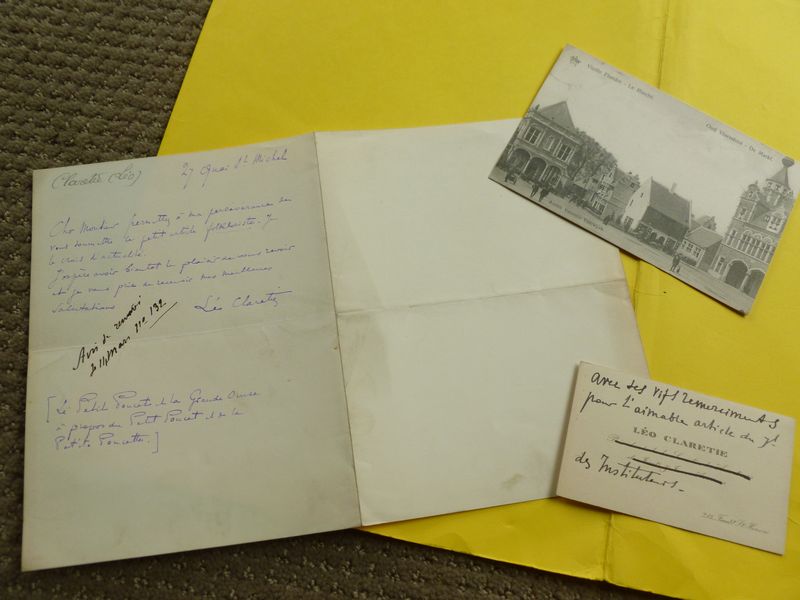 (Claretie (Léo)
27 Quai St Michel
Cher Monsieur permettez à ma persévérance de
vous soumettre ce petit article folkloriste. Je
le crois d'actualité.
J'espère avoir bientôt le plaisir de vous revoir
et je vous prie de recevoir mes meilleures
salutations
Léo Claretie
Avis de renvoi
le 14 Mars no 132
[Le Petit Poucet de la Grande Ourse
à propos du Petit Poucet et de la
Petite Poucette.]
Vieille Flandre - Le Marché
Oud Vlaenderen - De Markt
avec ses vifs remerciements
pour l'aimable article du Jal
LÉO CLARETIE
des Instituteurs_